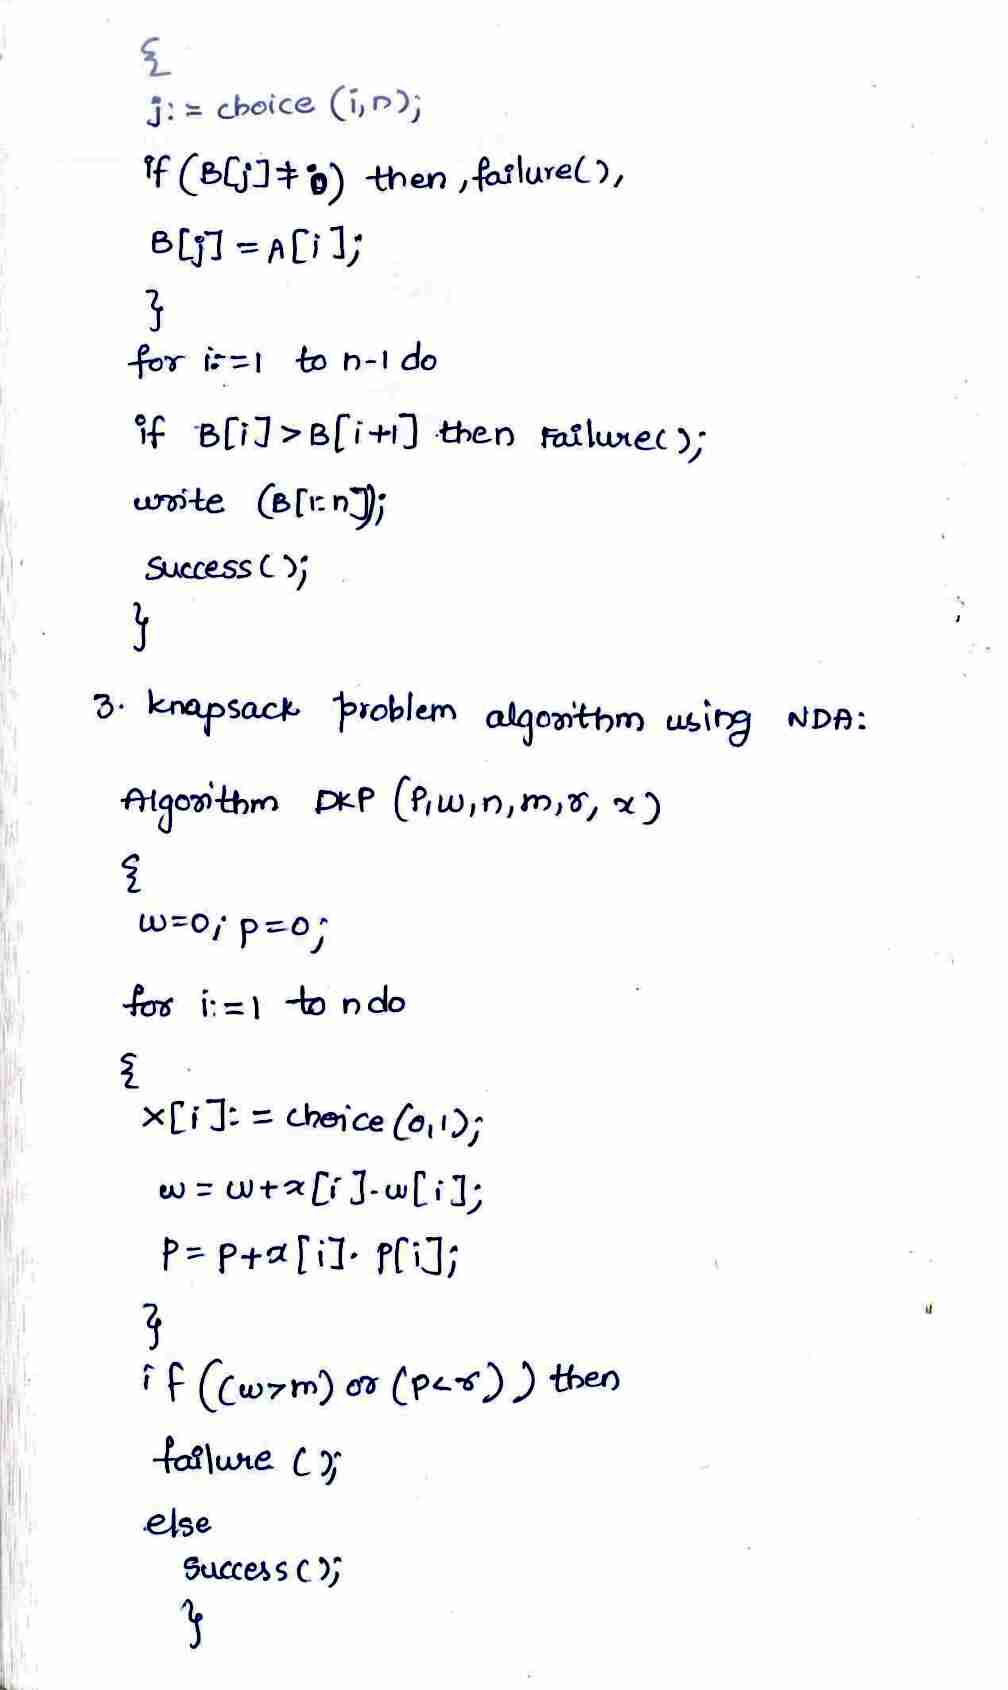 {
j:= choice (i,n);
if (B[j]≠0) then, failure(),
B[j] = A[i];
}
for i:=1 to n-1 do
if B[i]>B[i+1] then Failure();
write (B[1:n]);
Success();
}
3. knapsack problem algorithm using NDA:
Algorithm DKP (P,w,n,m,r,x)
{
w=0; p=0;
for i:=1 to n do
{
x[i]:= choice (0,1);
w = w+x[i].w[i];
P = P+x[i]. P[i];
}
if ((w>m) or (p<r)) then
failure ();
else
Success();
}